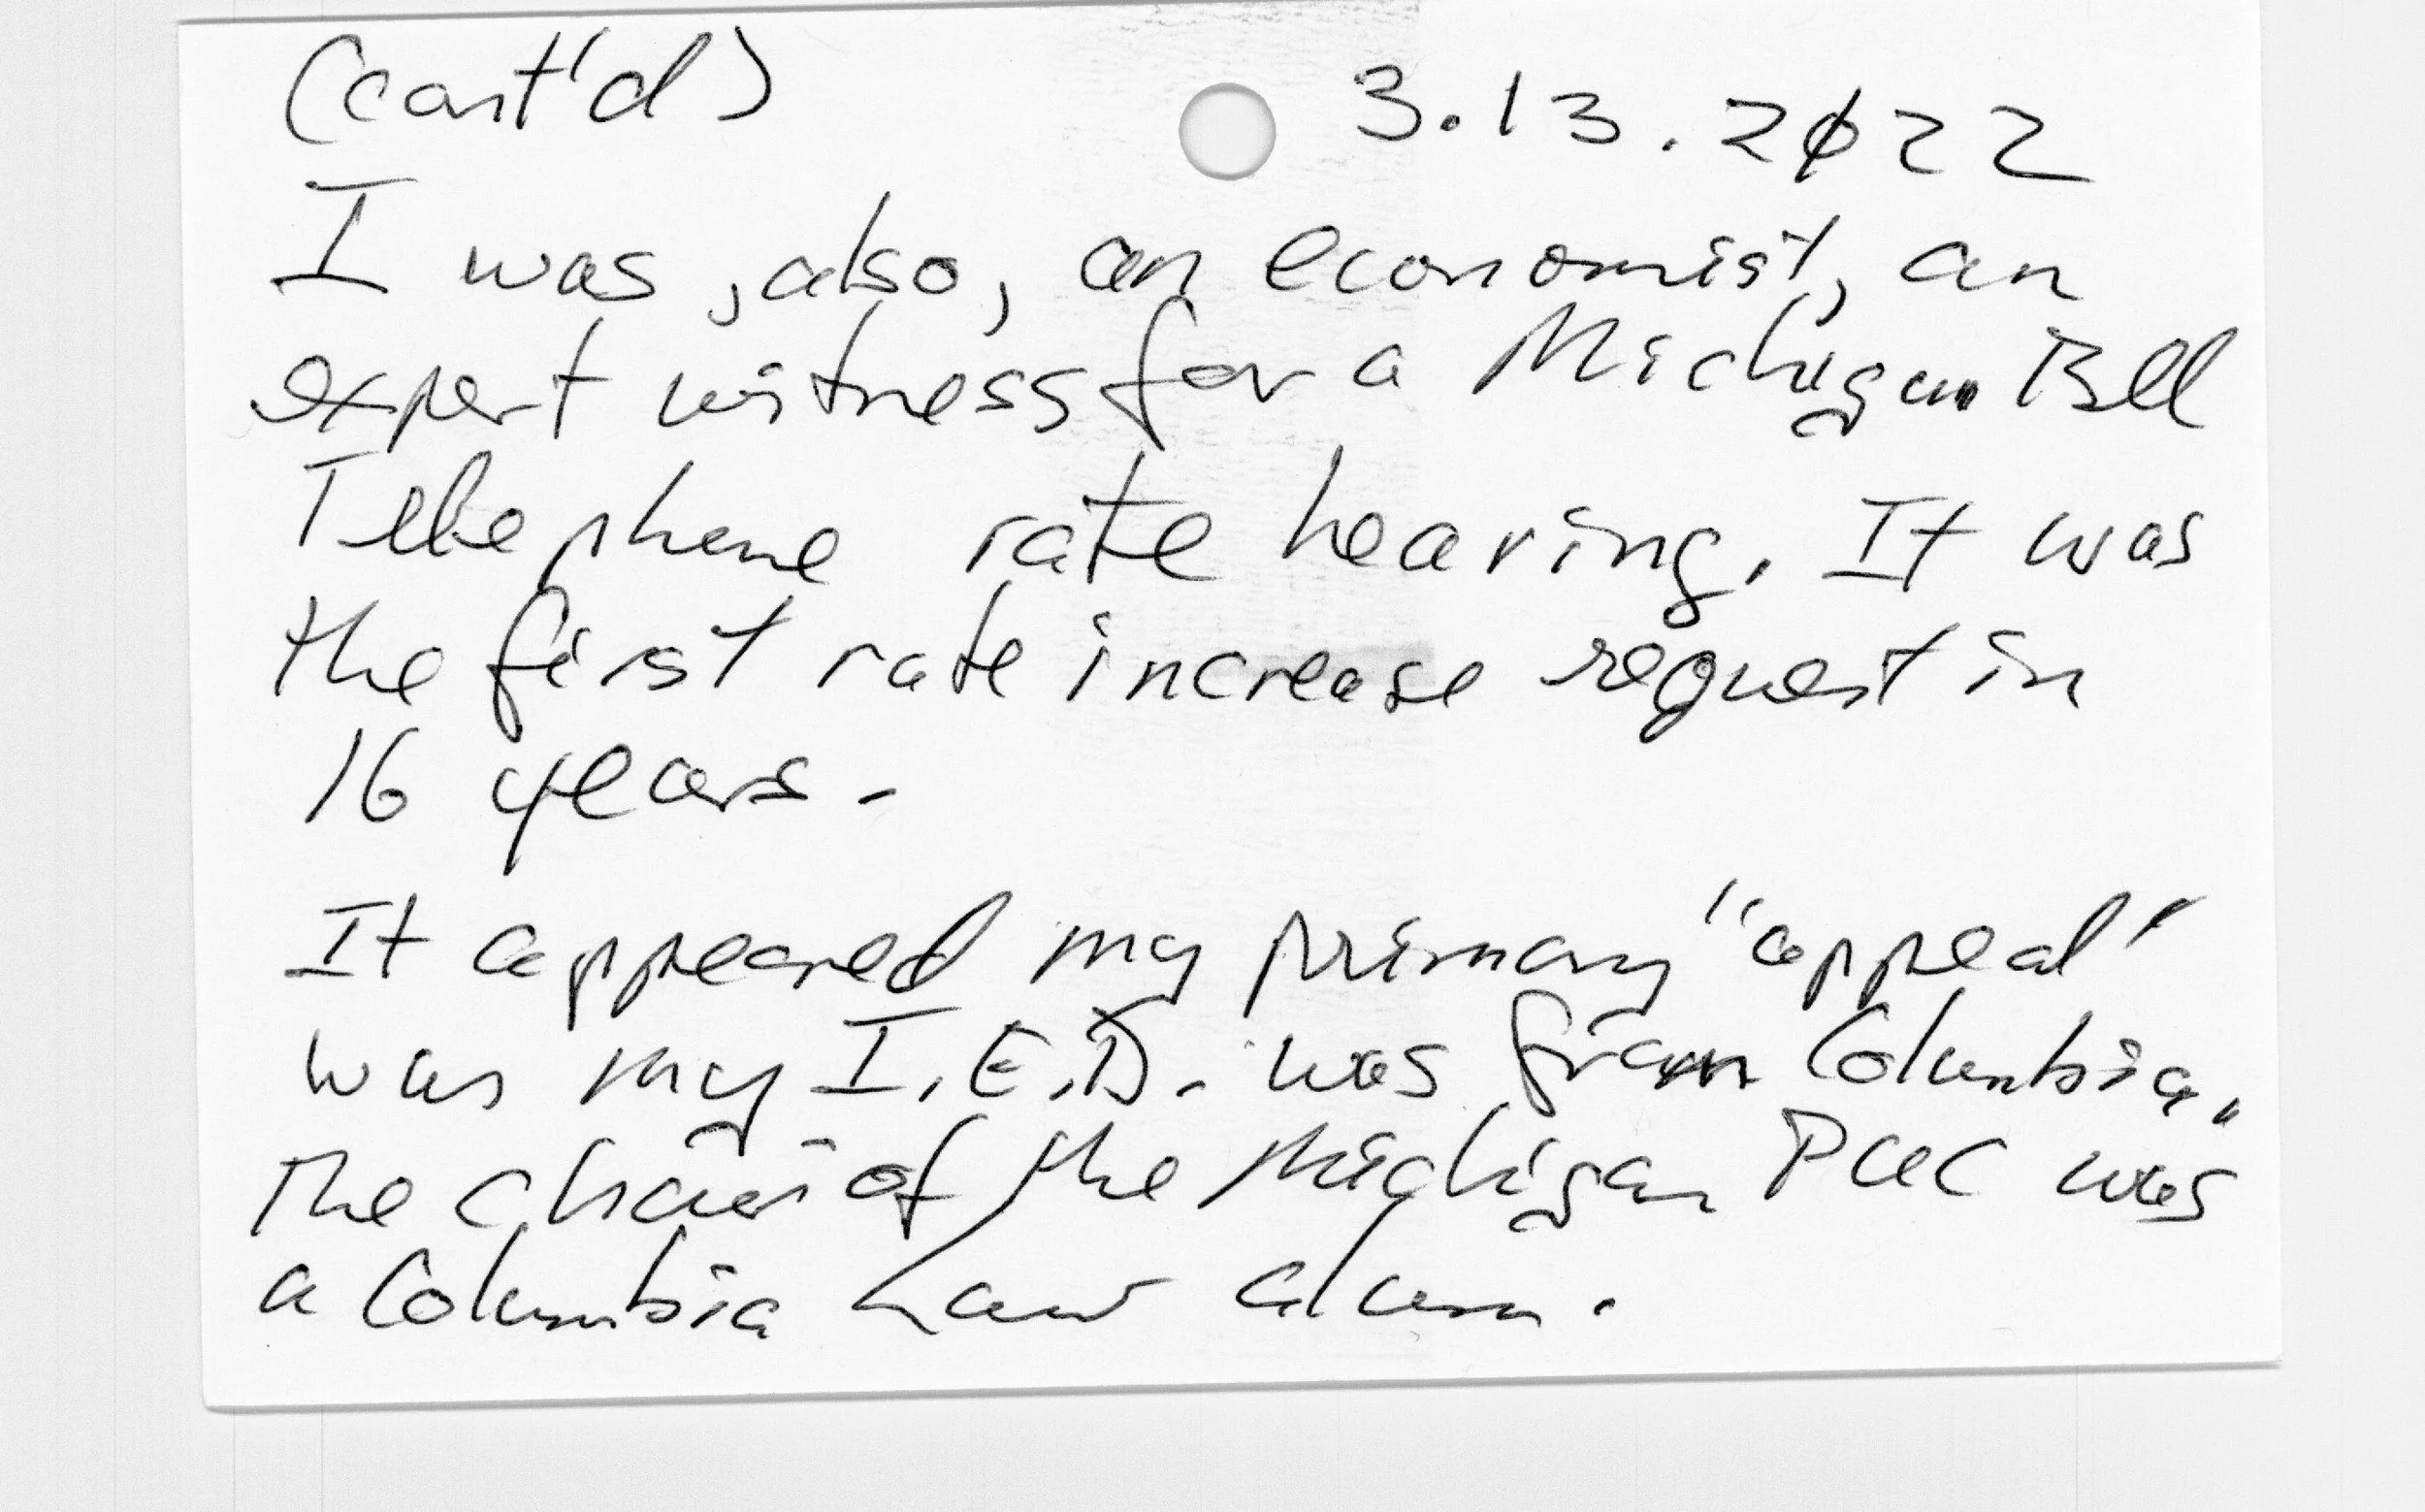 (cont'd) 3.13.2022
I was, also, an economist, an
expert witness for a Michigan Bell
Telephone rate hearing. It was
the first rate increase request in
16 years.
It appeared my primary "appeal"
was my I.E.D. was from Columbia,
The chair of the Michigan PUC was
a Columbia Law alum.